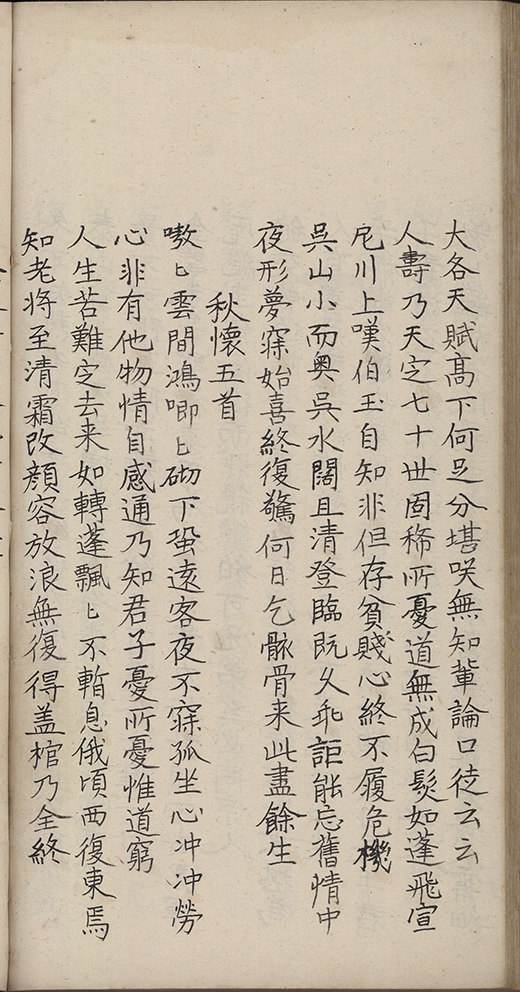 大各天賦髙下何足分堪咲無知軰論口徒云云
人壽乃天定七十世固稀所憂道無成白髮如蓬飛宣
尼川上嘆伯玉自知非但存貧賤心終不履危機
吳山小而奥吳水闊且清登臨既乂乖詎能忘舊情中
夜形夢寐始喜終復驚何日乞骸骨来此盡餘生
秋懷五首
嗷〻雲間鴻唧〻砌下蛩逺客夜不寐孤坐心冲冲勞
心非有他物情自感通乃知君子憂所憂惟道窮
人生苦難定去来如轉蓬飄〻不暫息俄頃西復東焉
知老将至清霜改顔容放浪無復得盖棺乃全終